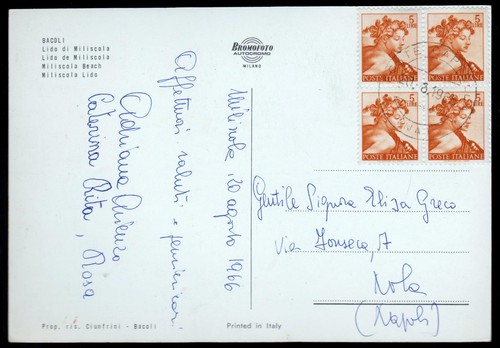 BACOLI
Lido di Miliscola
Lido de Miliscola
Miliscola Beach
Miliscola Lido
BROMOFOTO
AUTOCROMO
MILANO
5 LIRE
POSTE ITALIANE
5 LIRE
POSTE ITALIANE
5 LIRE
POSTE ITALIANE
5 LIRE
POSTE ITALIANE
Miliscola, 20 agosto 1966
Affettuosi saluti e pensieri cari
Adriana
Caterina Rita, Rosa
Gentile Signora Elisa Greco
Via Fonseca, 7
Nola
(Napoli)
Prop. ris. Cionfrini - Bacoli
Printed in Italy